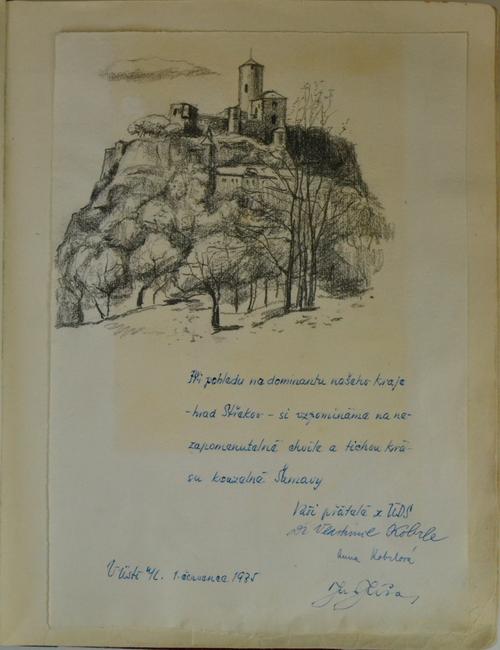 Při pohledu na dominantu našeho kraje
- hrad Střekov - si vzpomínáme na ne-
zapomenutelné chvíle a tichou krá-
su kouzelné Šumavy
Vaši přátelé z ÚDS
Dr Vlastimil Kobrle
Anna Kobrlová
V Ústí n/L. 1. července 1975